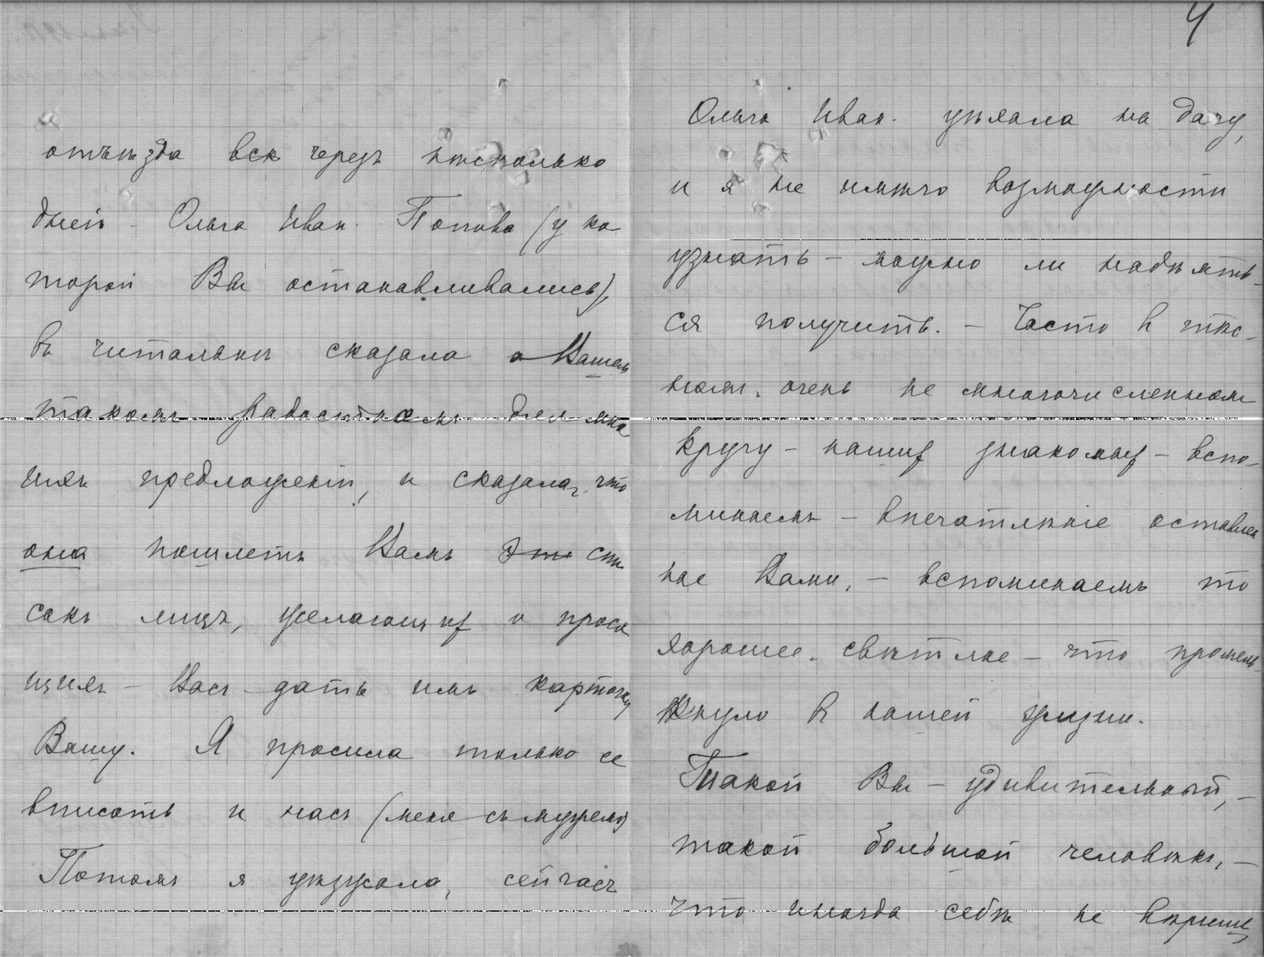 отъѣзда вск черезъ нѣсколько
дней - Ольга Иван. Попова (у ко-
торой Вы останавливались),
въ читальнѣ сказала о Вашемъ
такомъ радостномъ для мно
гихъ предложеніи, и сказала, что
она пошлетъ Вамъ это спи
сокъ лицъ, желающихъ и прося
щихъ - Васъ - дать имъ карточку
Вашу. Я просила только ее
вписать и насъ (меня съ мужемъ)
Потомъ я уѣзжала, сейчасъ
4
Ольга Иван. уѣхала на дачу,
и я не имѣю возможности
узнать - можно ли надѣять-
ся получить. - Часто в тѣс-
номъ. очень не многочисленномъ
кругу - нашихъ знакомыхъ - вспо-
минаемъ - впечатлѣніе оставлен
ное Вами, - вспоминаемъ то
хорошее. свѣтлое - что промель-
кнуло в нашей жизни.
Такой Вы - удивительный, -
такой большой человѣкъ, -
что иногда себѣ не вѣришь,